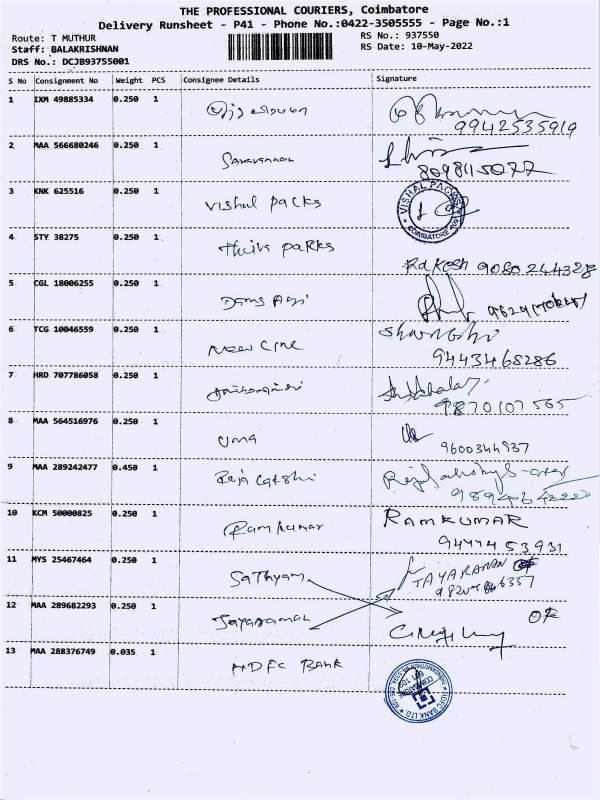 THE PROFESSIONAL COURIERS, Coimbatore
Delivery Runsheet - P41 - Phone No.:0422-3505555 - Page No.:1
Route: T MUTHUR
RS No.: 937550
Staff: BALAKRISHNAN
RS Date: 10-May-2022
DRS No.: DCJB93755001
S No Consignment No Weight PCS Consignee Details Signature
1 IXM 49885334 0.250 1
9942535919
2 MAA 566680246 0.250 1 Saravanan
8098115077
3 KNK 625516 0.250 1 Vishal packs
VISHAL PACKS
COIMBATORE
4 STY 38275 0.250 1 Thiva parks
Rakesh 9080244328
5 CGL 18006255 0.250 1
6 TCG 10046559 0.250 1 New Cine
9443468286
7 HRD 707786058 0.250 1
9870107565
8 MAA 564516976 0.250 1 uma
9600344937
9 MAA 289242477 0.450 1 Raja Lakshmi
10 KCM 50000825 0.250 1 Ramkumar RAMKUMAR
9444453931
11 MYS 25467464 0.250 1 Sathyam JAYARAMAN
12 MAA 289682293 0.250 1 Jayaraman
13 MAA 288376749 0.035 1 HDFC Bank
HDFC BANK LTD.